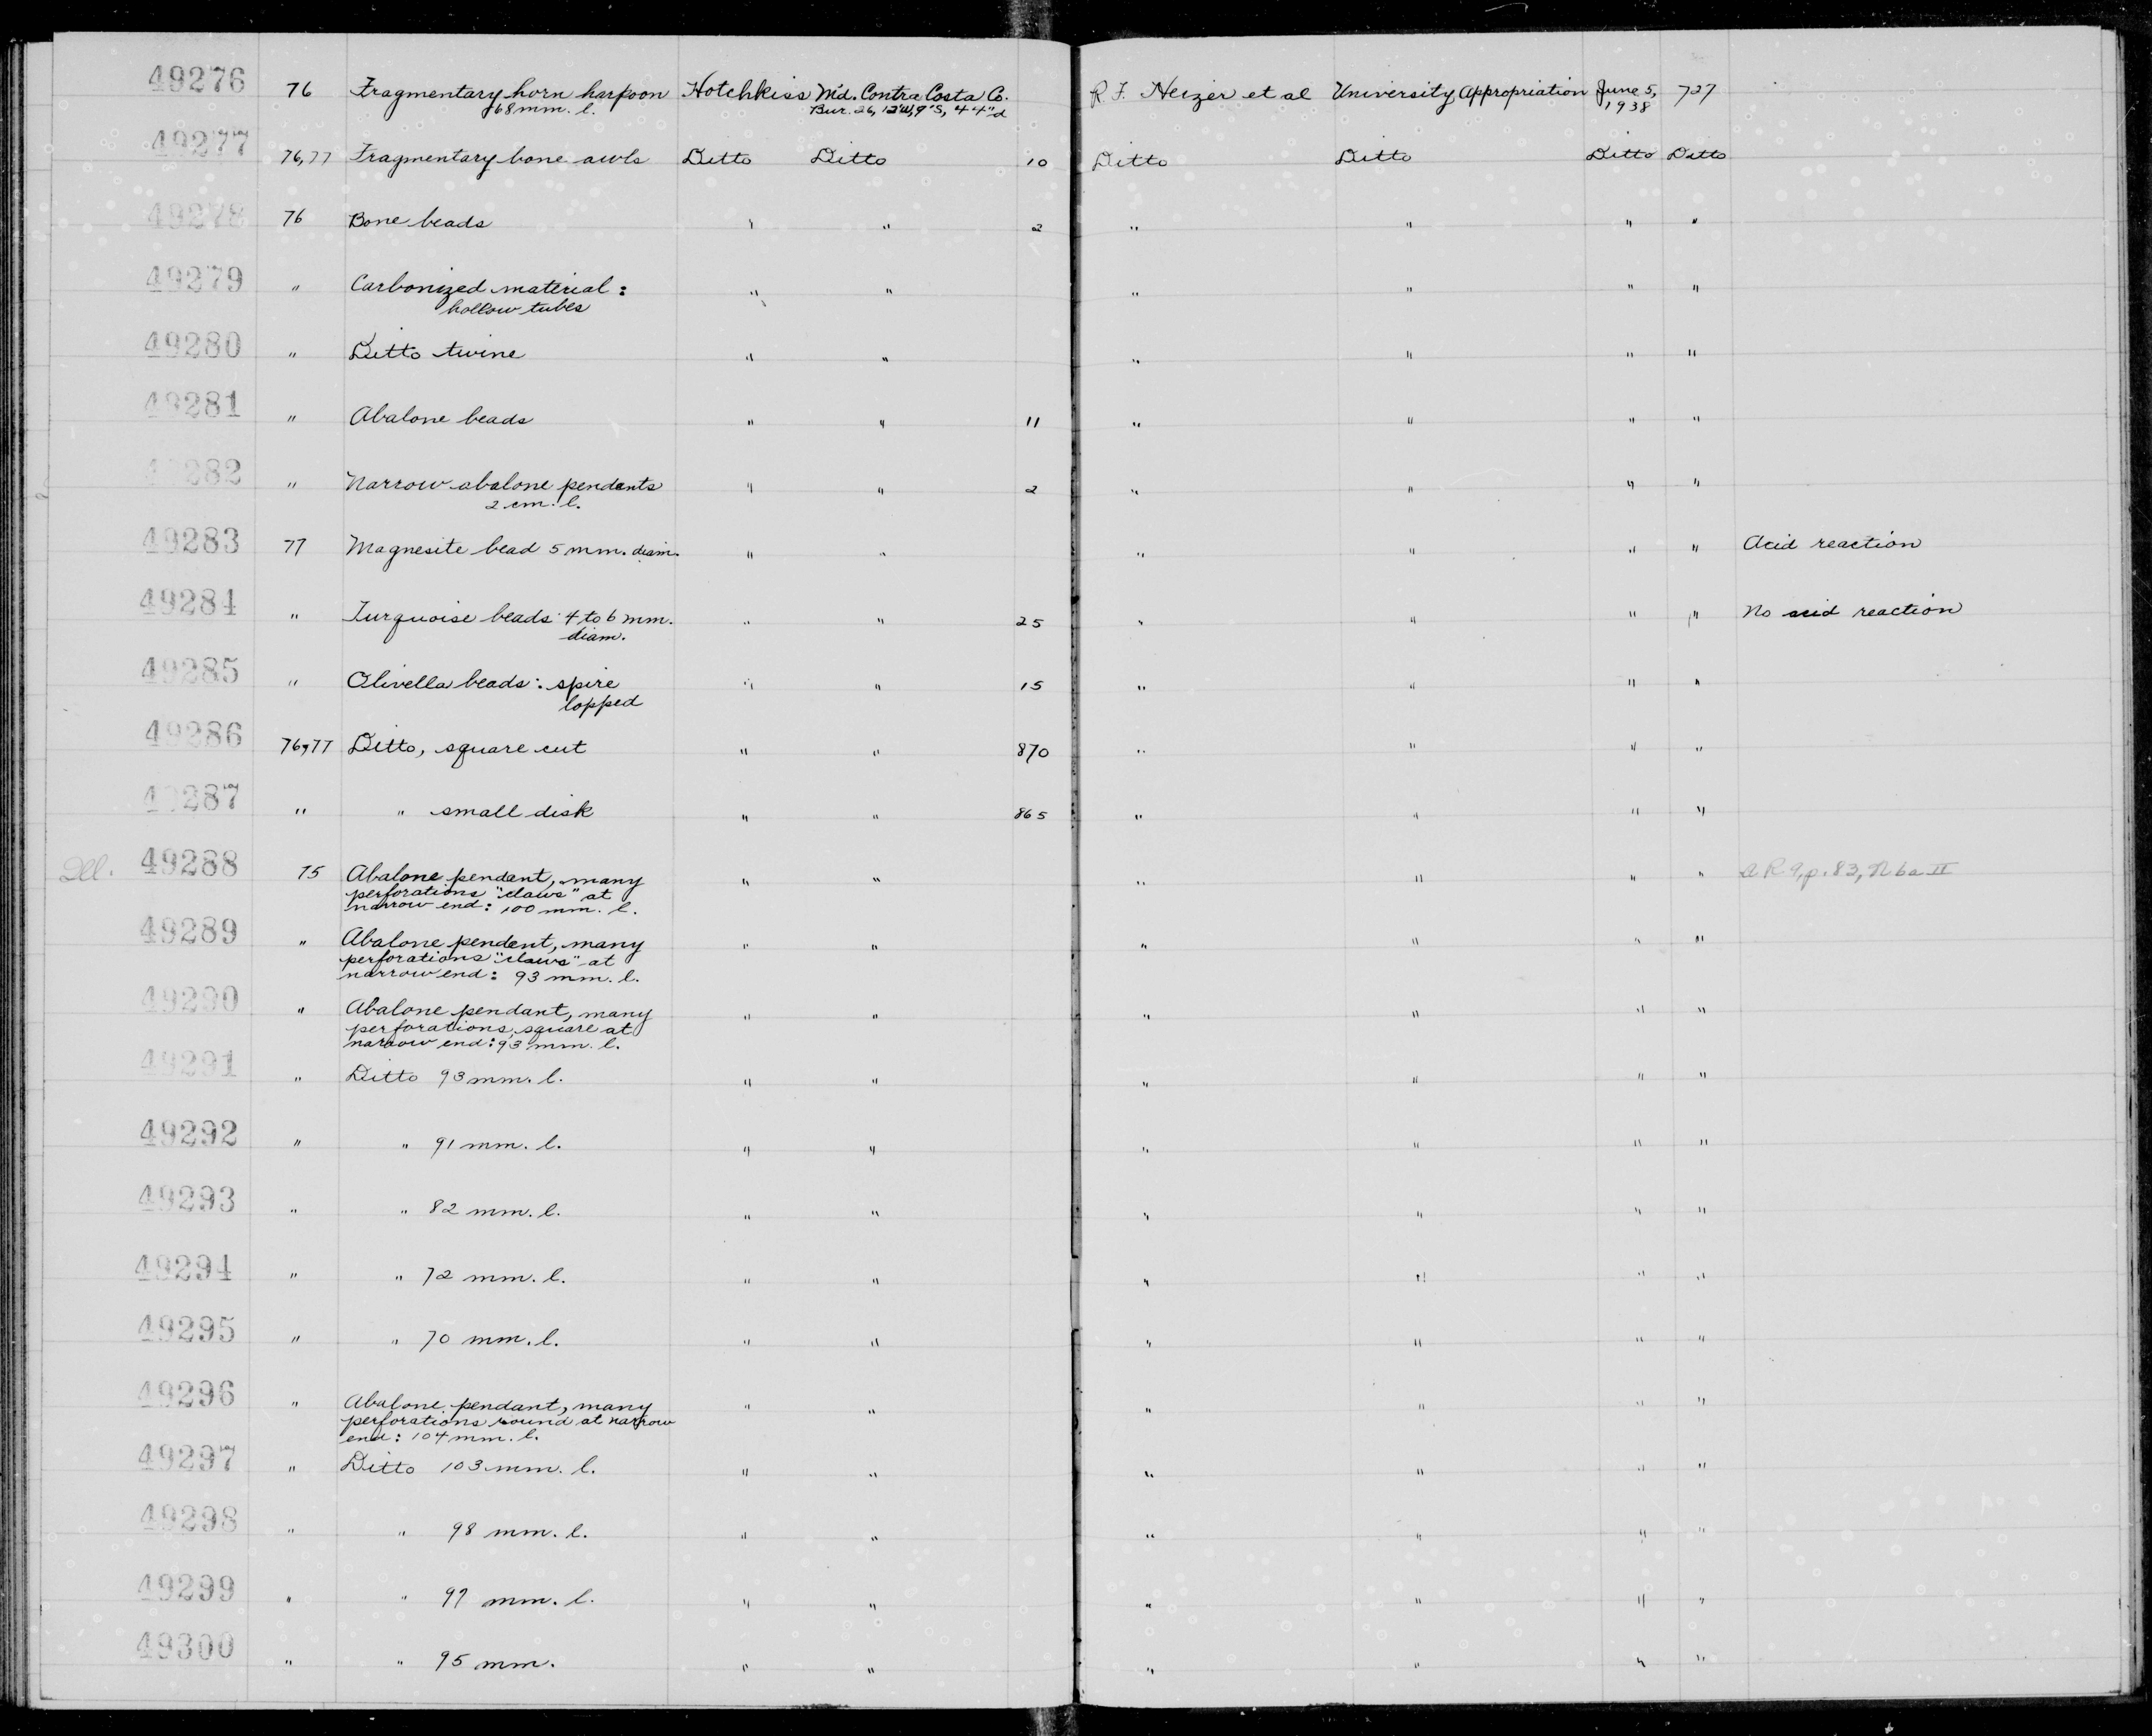 49276 76 Fragmentary horn harpoon Hotchkiss Md. Contra Costa Co. R. F. Heizer et al University Appropriation June 5, 727
68 mm. l. Bur. 26, 12'W, 9"S, 44"d 1938
49277 76,77 Fragmentary bone awls Ditto Ditto 10 Ditto Ditto Ditto Ditto
49278 76 Bone beads " " 2 " " " "
49279 " Carbonized material: " " " " " "
hollow tubes
49280 " Ditto twine " " " " " "
49281 " Abalone beads " " 11 " " " "
49282 " Narrow abalone pendants " " 2 " " " "
2 cm. l.
49283 77 Magnesite bead 5 mm. diam. " " " " " " Acid reaction
49284 " Turquoise beads 4 to 6 mm. " " 25 " " " " No acid reaction
diam.
49285 " Olivella beads: spire " " 15 " " " "
lopped
49286 76,77 Ditto, square cut " " 870 " " " "
49287 " " small disk " " 865 " " " "
Ill. 49288 75 Abalone pendant, many " " " " " " A R 9, p. 83, N6a II
perforations "claws" at
narrow end: 100 mm. l.
49289 " Abalone pendent, many " " " " " "
perforations "claws" at
narrow end: 93 mm. l.
49290 " Abalone pendant, many " " " " " "
perforations, square at
narrow end: 93 mm. l.
49291 " Ditto 93 mm. l. " " " " " "
49292 " " 91 mm. l. " " " " " "
49293 " " 82 mm. l. " " " " " "
49294 " " 72 mm. l. " " " " " "
49295 " " 70 mm. l. " " " " " "
49296 " Abalone pendant, many " " " " " "
perforations round at narrow
end: 104 mm. l.
49297 " Ditto 103 mm. l. " " " " " "
49298 " " 98 mm. l. " " " " " "
49299 " " 97 mm. l. " " " " " "
49300 " " 95 mm. " " " " " "